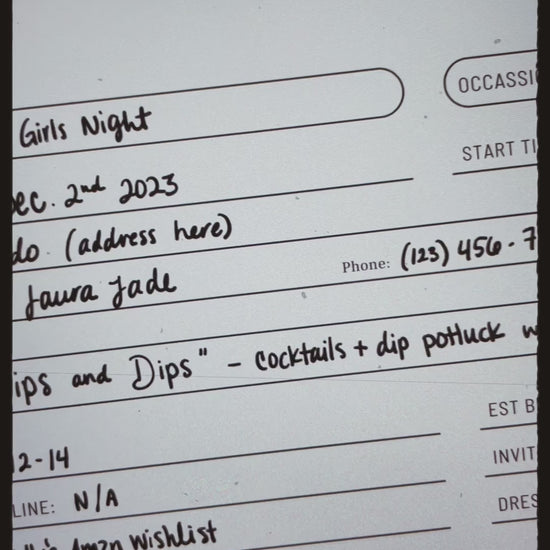 Girls Night OCCASSI
ec. 2nd 2023 START TI
do. (address here)
Laura Jade Phone: (123) 456-7
ips and Dips" - cocktails + dip potluck w
EST B
2-14 INVIT
LINE: N/A DRES
Amzn Wishlist